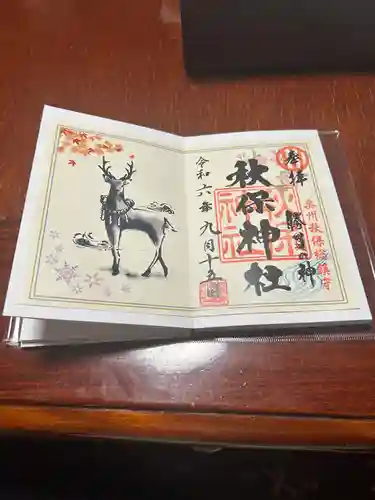 奉拝
奥州秋保総鎮守
勝負の神
秋保神社
令和六年九月十五日